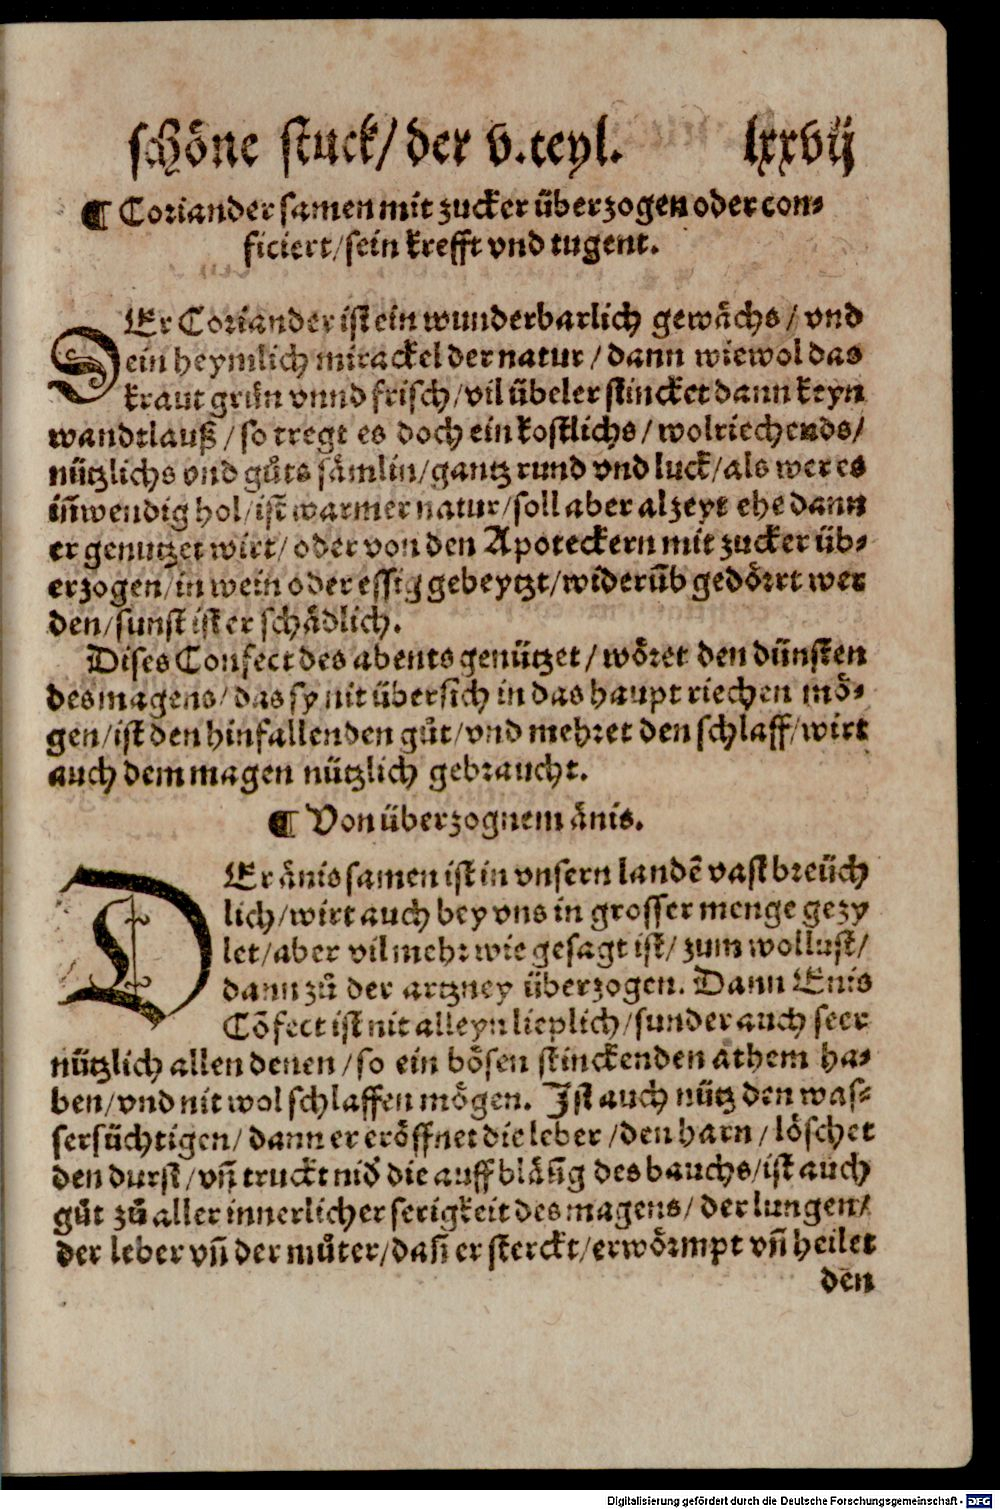 schöne stuck/ der v. teyl. lxxvij
¶ Coriander samen mit zucker überzogen oder con⸗
ficiert/ sein krefft vnd tugent.
DEr Coriander ist ein wunderbarlich gewächs/ vnd
ein heymlich mirackel der natur/ dann wiewol das
kraut grün vnnd frisch/ vil übeler stincket dann keyn
wandtlauß/ so tregt es doch ein kostlichs/ wolriechends/
nützlichs vnd gůts sämlin/ gantz rund vnd luck/ als wer es
iñwendig hol/ ist warmer natur/ soll aber alzeyt ehe dann
er genutzet wirt/ oder von den Apoteckern mit zucker üb⸗
erzogen/ in wein oder essig gebeytzt/ widerūb gedörrt wer
den/ sunst ist er schädlich.
Dises Confect des abents genützet/ wöret den dünsten
des magens/ das sy nit übersich in das haupt riechen mö⸗
gen/ ist den hinfallenden gůt/ vnd mehret den schlaff/ wirt
auch dem magen nützlich gebraucht.
¶ Von überzognem änis.
DEr änis samen ist in vnsern landē vast breüch
lich/ wirt auch bey vns in grosser menge gezy
let/ aber vil mehr wie gesagt ist/ zum wollust/
dann zů der artzney überzogen. Dann Enis
Cōfect ist nit alleyn lieplich/ sunder auch seer
nützlich allen denen/ so ein bösen stinckenden athem ha⸗
ben/ vnd nit wol schlaffen mögen. Ist auch nütz den was⸗
sersüchtigen/ dann er eröffnet die leber/ den harn/ löschet
den durst/ vñ truckt nid̄ die auffbläūg des bauchs/ ist auch
gůt zů aller innerlicher serigkeit des magens/ der lungen/
der leber vñ der můter/ dañ er sterckt/ erwörmpt vñ heilet
den
Digitalisierung gefördert durch die Deutsche Forschungsgemeinschaft - DFG